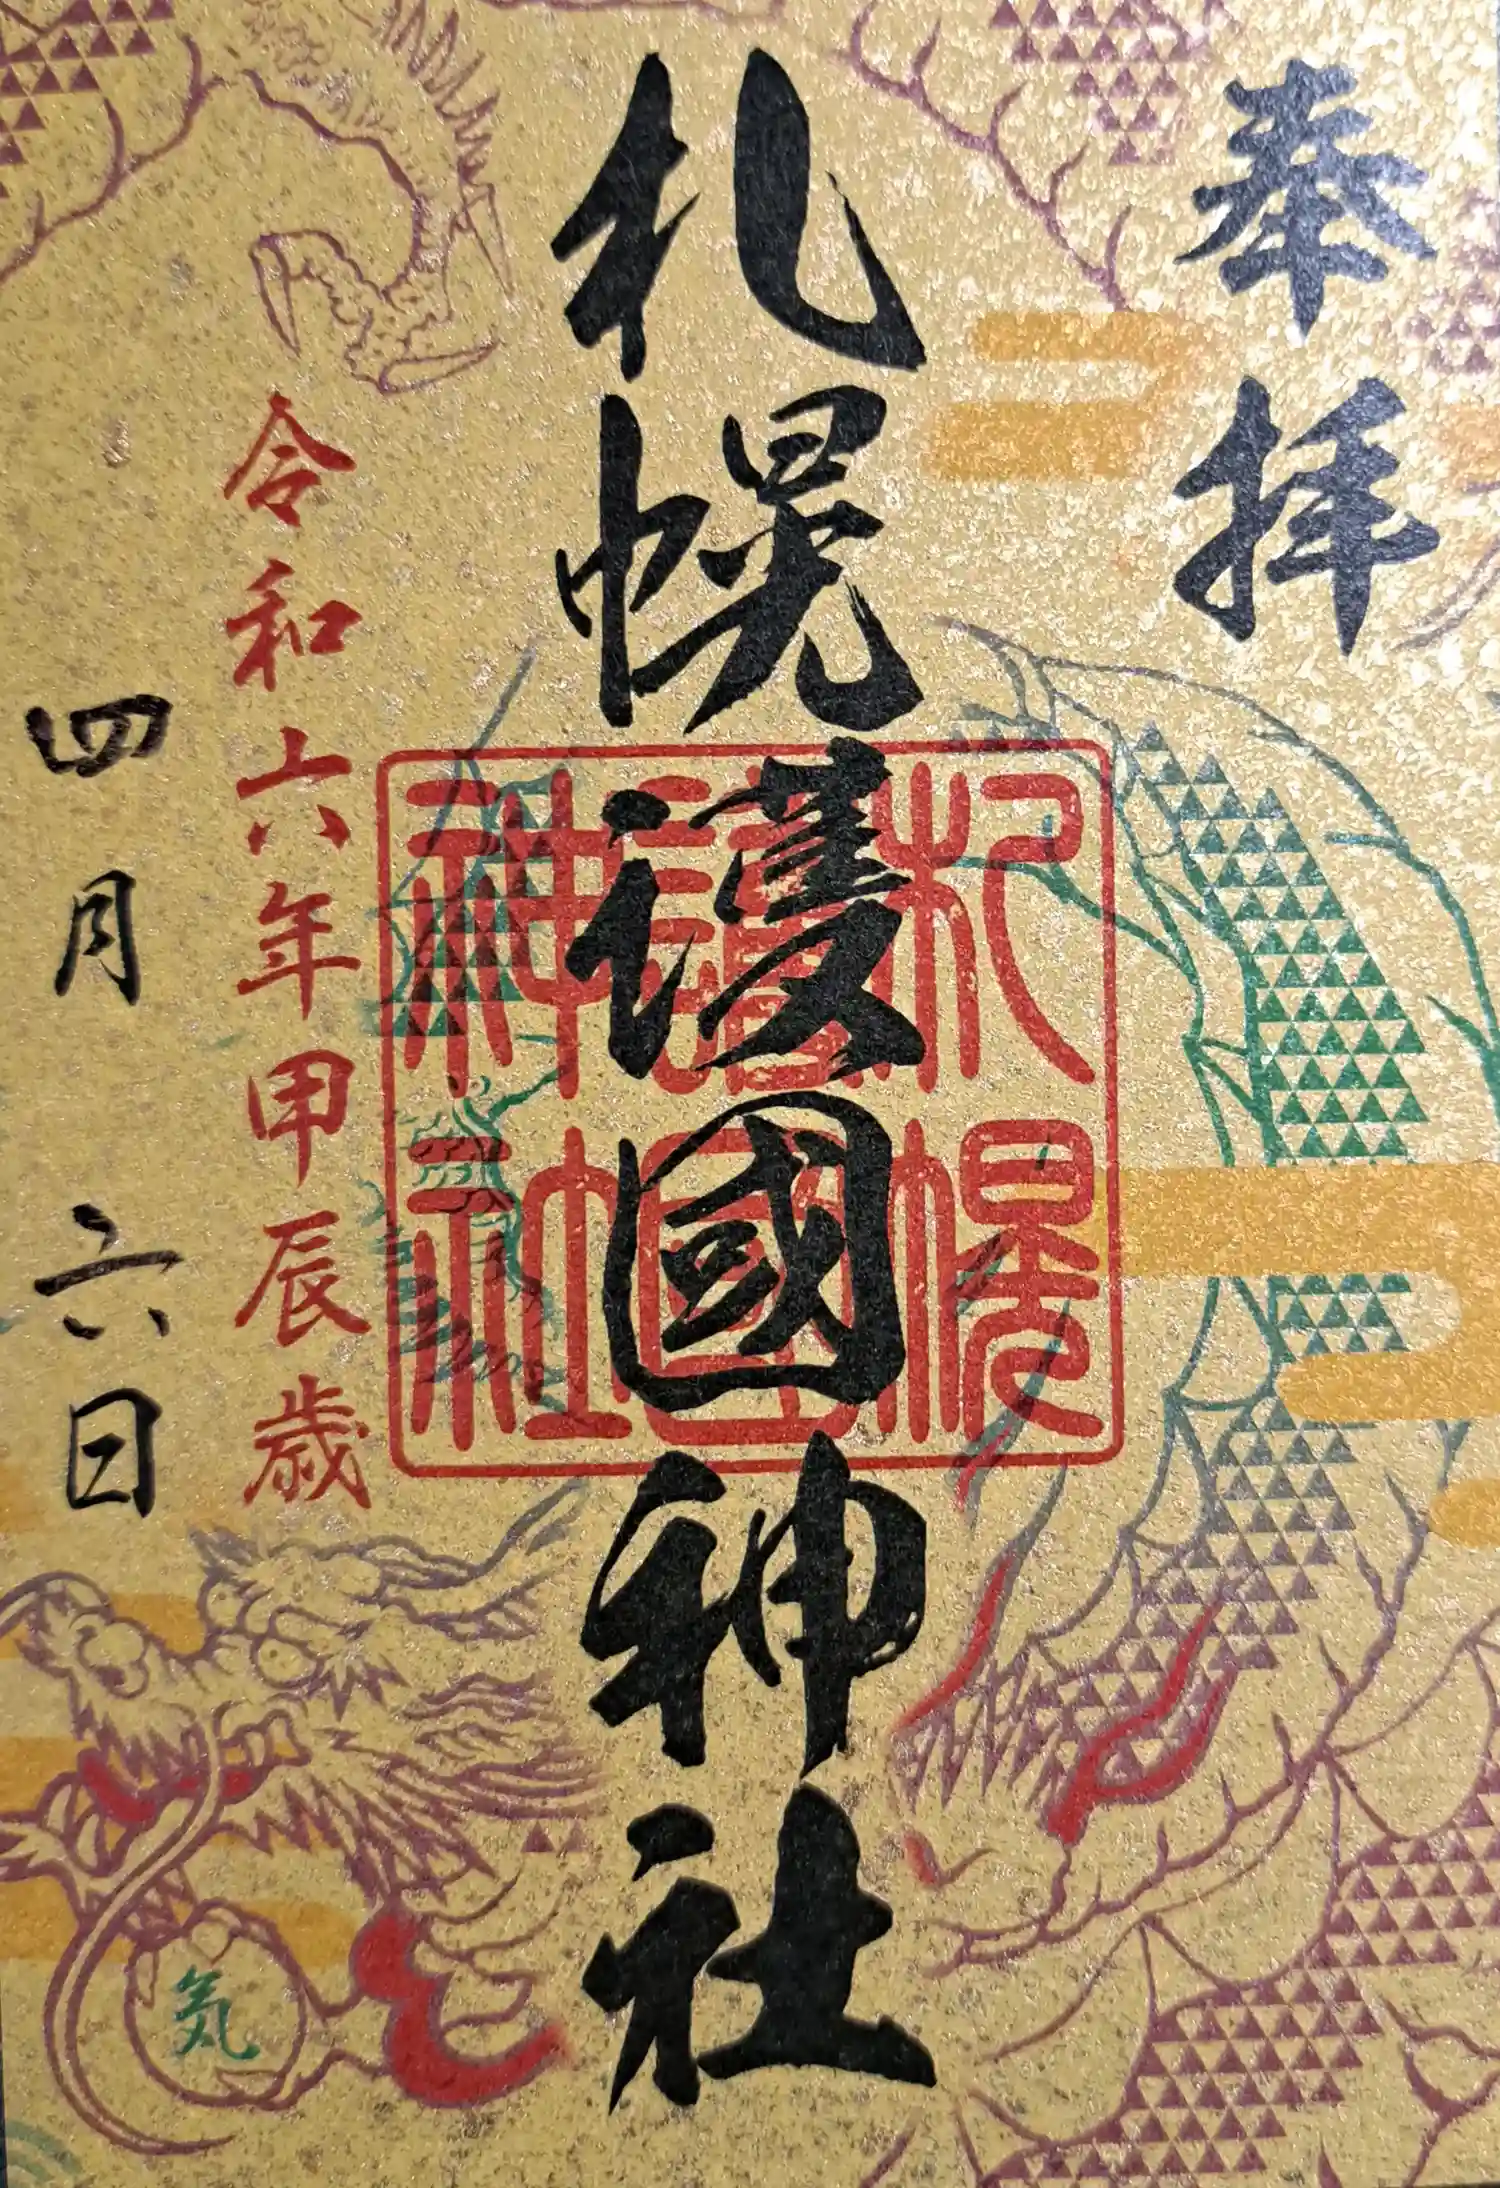 奉拝
札幌護國神社
札幌
護國
神社
令和六年甲辰歳
四月六日
気